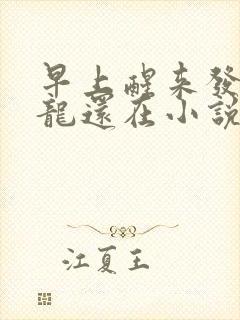 早上醒来發
龍還在小說
江夏王